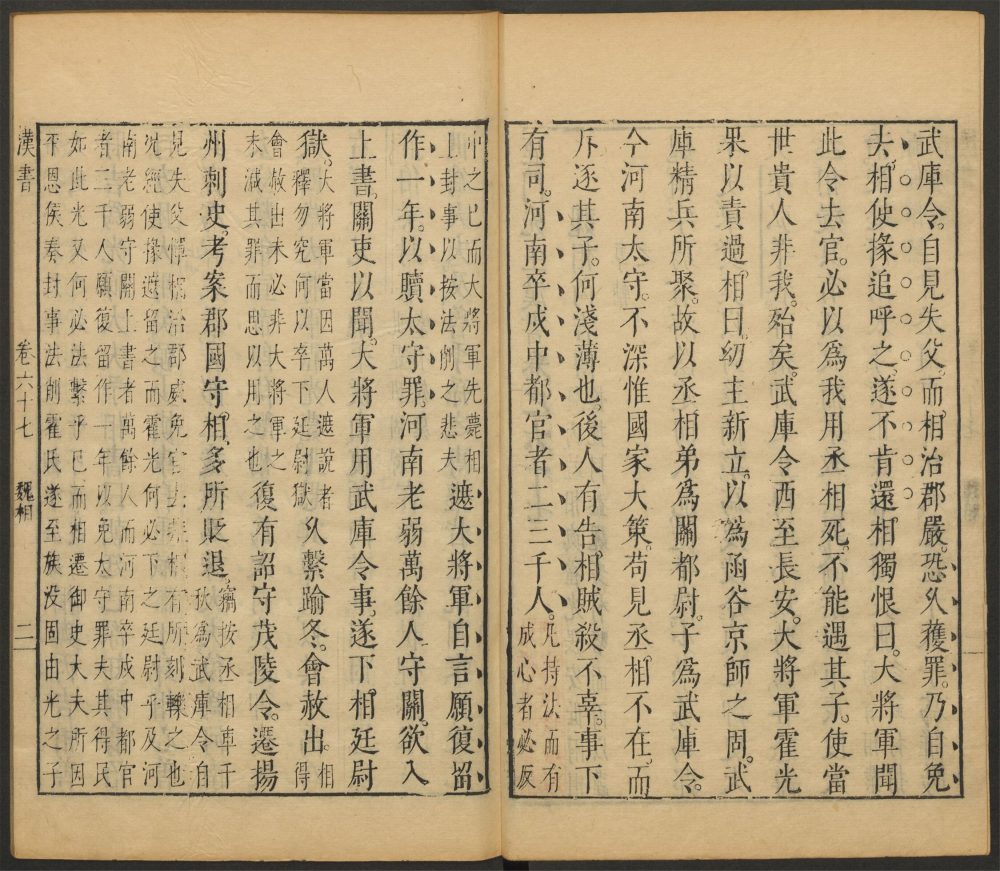 武庫令。自見失父而相治郡嚴。恐久獲罪。乃自免
去。相使掾追呼之。遂不肯還。相獨恨曰。大將軍聞
此令去官。必以為我用丞相死。不能遇其子。使當
世貴人非我。殆矣。武庫令西至長安。大將軍霍光
果以責過相曰。幼主新立。以為函谷京師之固。武
庫精兵所聚。故以丞相弟為關都尉。子為武庫令。
今河南太守。不深惟國家大策。苟見丞相不在。而
斥逐其子。何淺薄也後人有告相賊殺不辜。事下
有司。河南卒戍中都官者二三千人。
凡持法而有
成心者必反
中之已而大將軍先薨相
上封事以按法削之悲夫
遮大將軍自言願復留
作一年。以贖太守罪。河南老弱萬餘人守關。欲入
上書。關吏以聞。大將軍用武庫令事。遂下相廷尉
獄。
大將軍當因萬人遮說者
釋勿究何以卒下廷尉獄
久繫踰冬。會赦出。
相得
會赦出未必非大將軍之
未減其罪而思以用之也
復有詔守茂陵令。遷揚
州刺史。考案郡國守相。多所貶退。
竊按丞相車千
秋為武庫令自
見失父憚相治郡威免官去非相有所刻轢之也
況經使掾遮留之而霍光何必下之廷尉乎及河
南老弱守關上書者萬餘人而河南卒戍中都官
者二三千人願復留作一年以免太守罪夫其得民
如此光又何必法繫乎已而相遷御史大夫所因
平恩侯奏封事法削霍氏遂至族没固由光之子
漢書
卷六十七
魏相
二